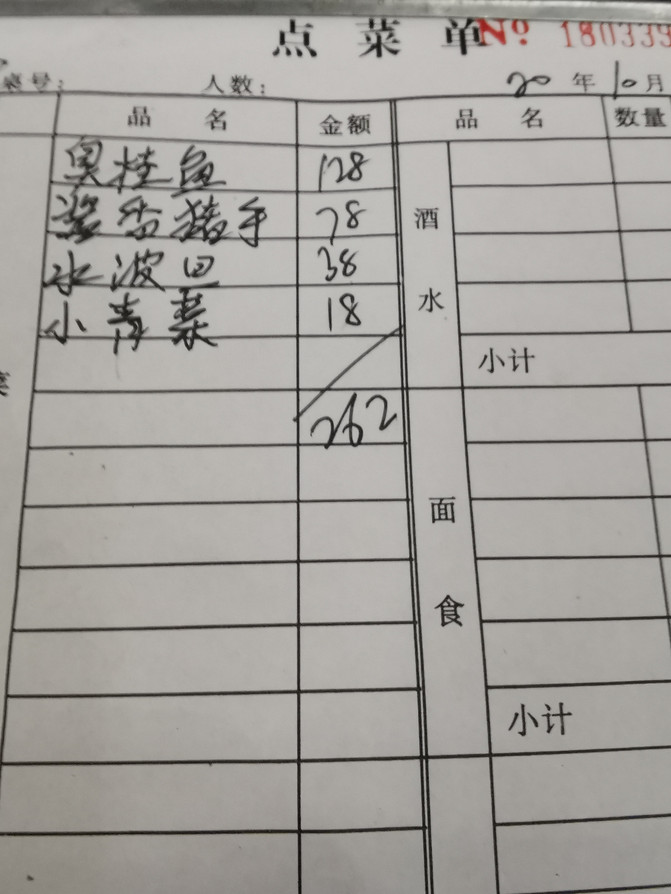 点菜单 No 180339
桌号： 人数： 20 年 10 月
品 名 金额 品 名 数量
臭桂鱼 128
酱香猪手 78
水波旦 38
小青菜 18
262
酒水
小计
面食
小计